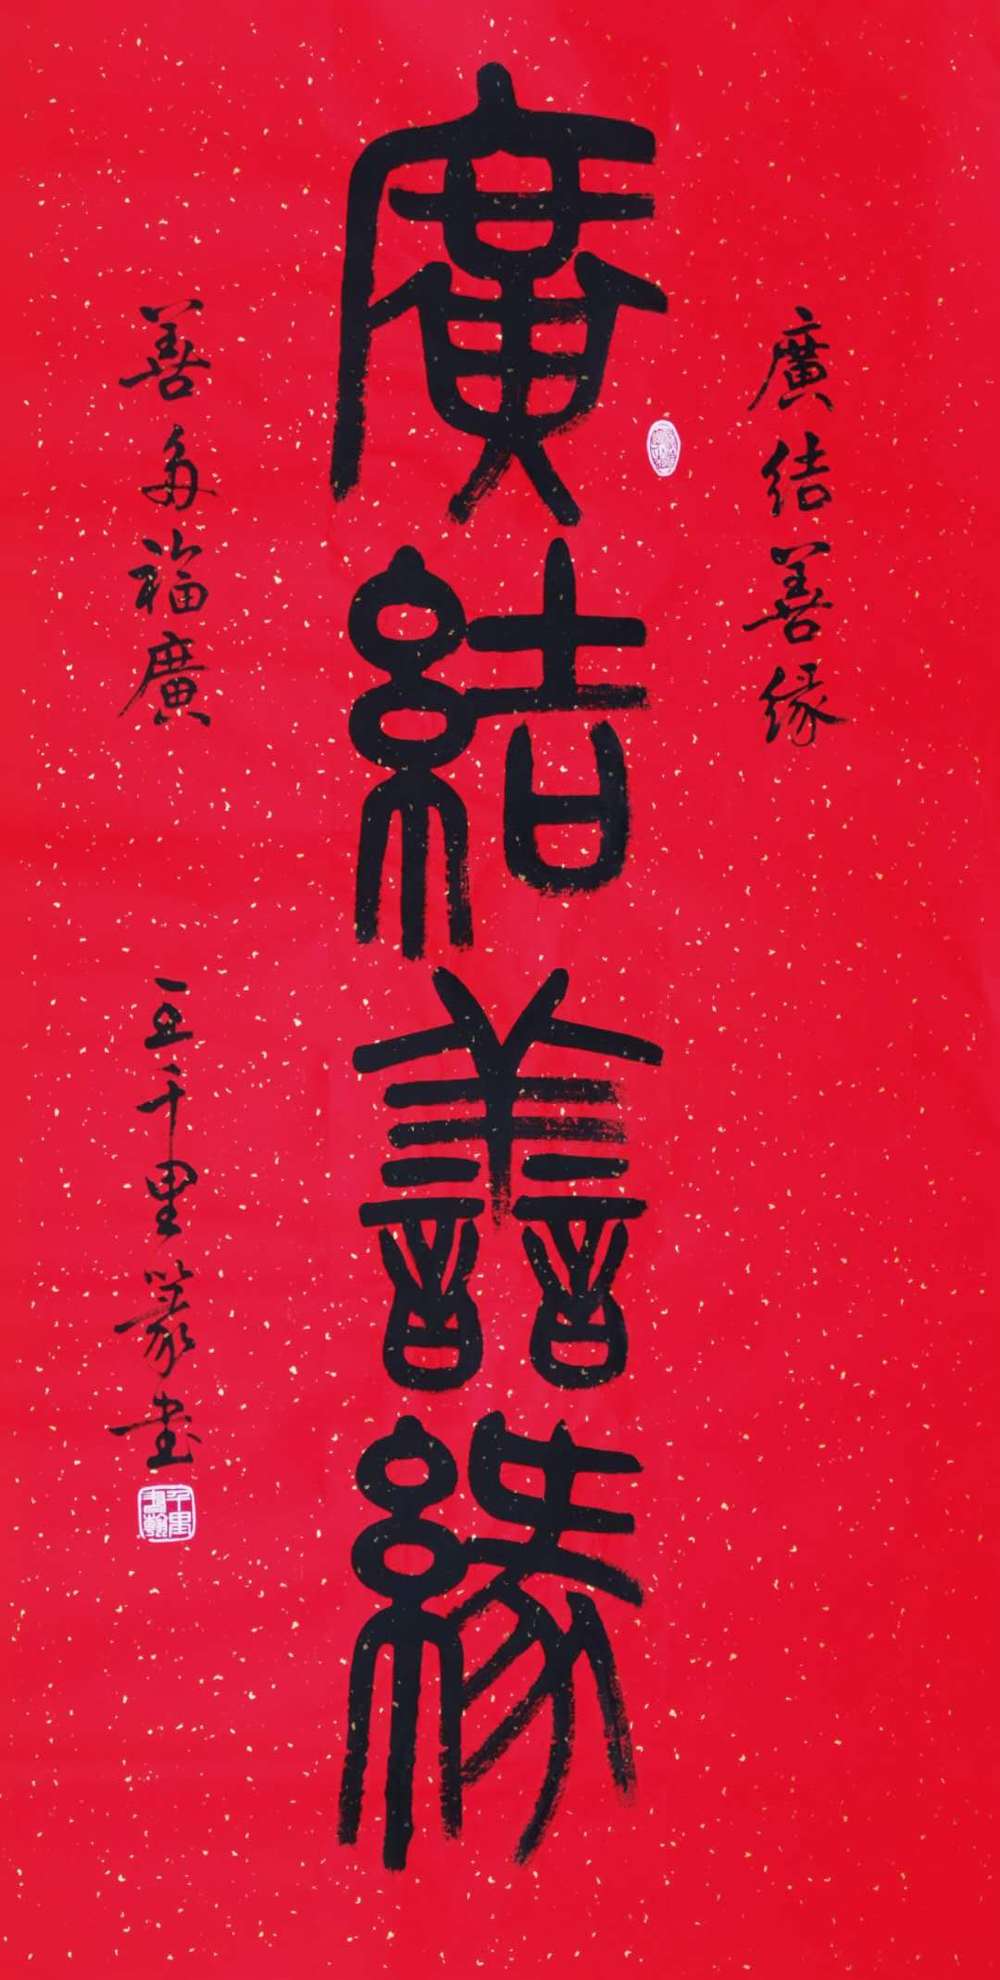 廣結善緣
廣結善緣
善多福廣
王千里篆書